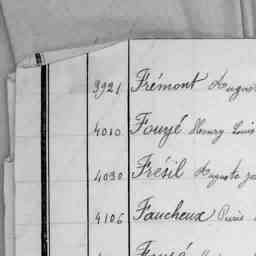 3921 Frémont
4010 Fouyé Henry Louis
4090 Frésil Auguste
4106 Faucheux